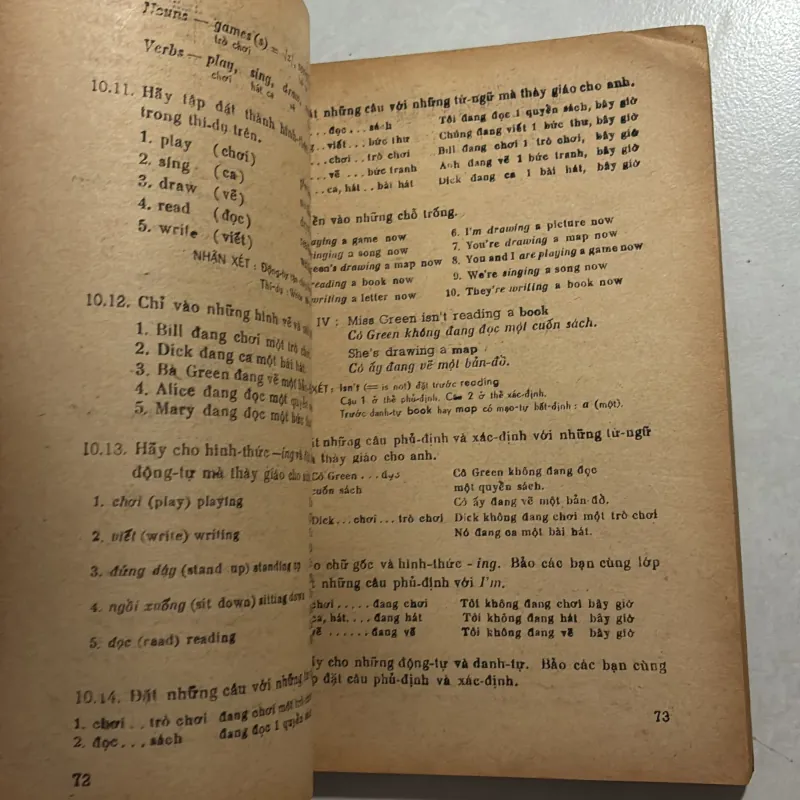 Nouns — games(s) =
trò chơi
Verbs — play, sing,
chơi hát ca vẽ
10.11. Hãy tập đặt thành hình-
trong thí-dụ trên.
1. play (chơi)
2. sing (ca)
3. draw (vẽ)
4. read (đọc)
5. write (viết)
NHẬN XÉT : Động-tự
Thí-dụ :
10.12. Chỉ vào những hình vẽ và
1. Bill đang chơi một trò
2. Dick đang ca một bài hát
3. Bà Green đang vẽ một
4. Alice đang đọc một
5. Mary đang đọc một bức
10.13. Hãy cho hình-thức -ing và
động-tự mà thày giáo cho
1. chơi (play) playing
2. viết (write) writing
3. đứng dậy (stand up) standing up
4. ngồi xuống (sit down) sitting down
5. đọc (raad) reading
10.14. Đặt những câu với những
1. chơi .. trò chơi đang chơi một
2. đọc ... sách đang đọc 1 quyển
72
những câu với những từ-ngữ mà thày giáo cho anh.
... đọc ... sách Tôi đang đọc 1 quyển sách, bây giờ
.. viết ... bức thư Chúng đang viết 1 bức thư, bây giờ
... chơi .. trò chơi Bill đang chơi 1 trò chơi, bây giờ
... vẽ ... bức tranh Anh đang vẽ 1 bức tranh, bây giờ
.. ca, hát .. bài hát Dick đang ca 1 bài hát, bây giờ
vào những chỗ trống.
a game now 6. I'm drawing a picture now
a song now 7. You're drawing a map now
drawing a map now 8. You and I are playing a game now
reading a book now 9. We're singing a song now
writing a letter now 10. They're writing a book now
IV : Miss Green isn't reading a book
Cô Green không đang đọc một cuốn sách.
She's drawing a map
Cô ấy đang vẽ một bản-đồ.
XÉT : Isn't (= is not) đặt trước reading
Câu 1 ở thể phủ-định. Câu 2 ở thể xác-định.
Trước danh-tự book hay map có mạo-tự bất-định : a (một).
những câu phủ-định và xác-định với những từ-ngữ
thày giáo cho anh.
Cô Green ... đọc Cô Green không đang đọc
cuốn sách một quyển sách.
Cô ấy đang vẽ một bản đồ.
Dick ... chơi ... trò chơi Dick không đang chơi một trò chơi
Nó đang ca một bài hát.
chữ gốc và hình-thức - ing. Bảo các bạn cùng lớp
những câu phủ-định với I'm.
chơi ..... đang chơi Tôi không đang chơi bây giờ
ca, hát ... đang hát Tôi không đang hát bây giờ
vẽ ...... đang vẽ Tôi không đang vẽ bây giờ
cho những động-tự và danh-tự. Bảo các bạn cùng
đặt câu phủ-định và xác-định.
73